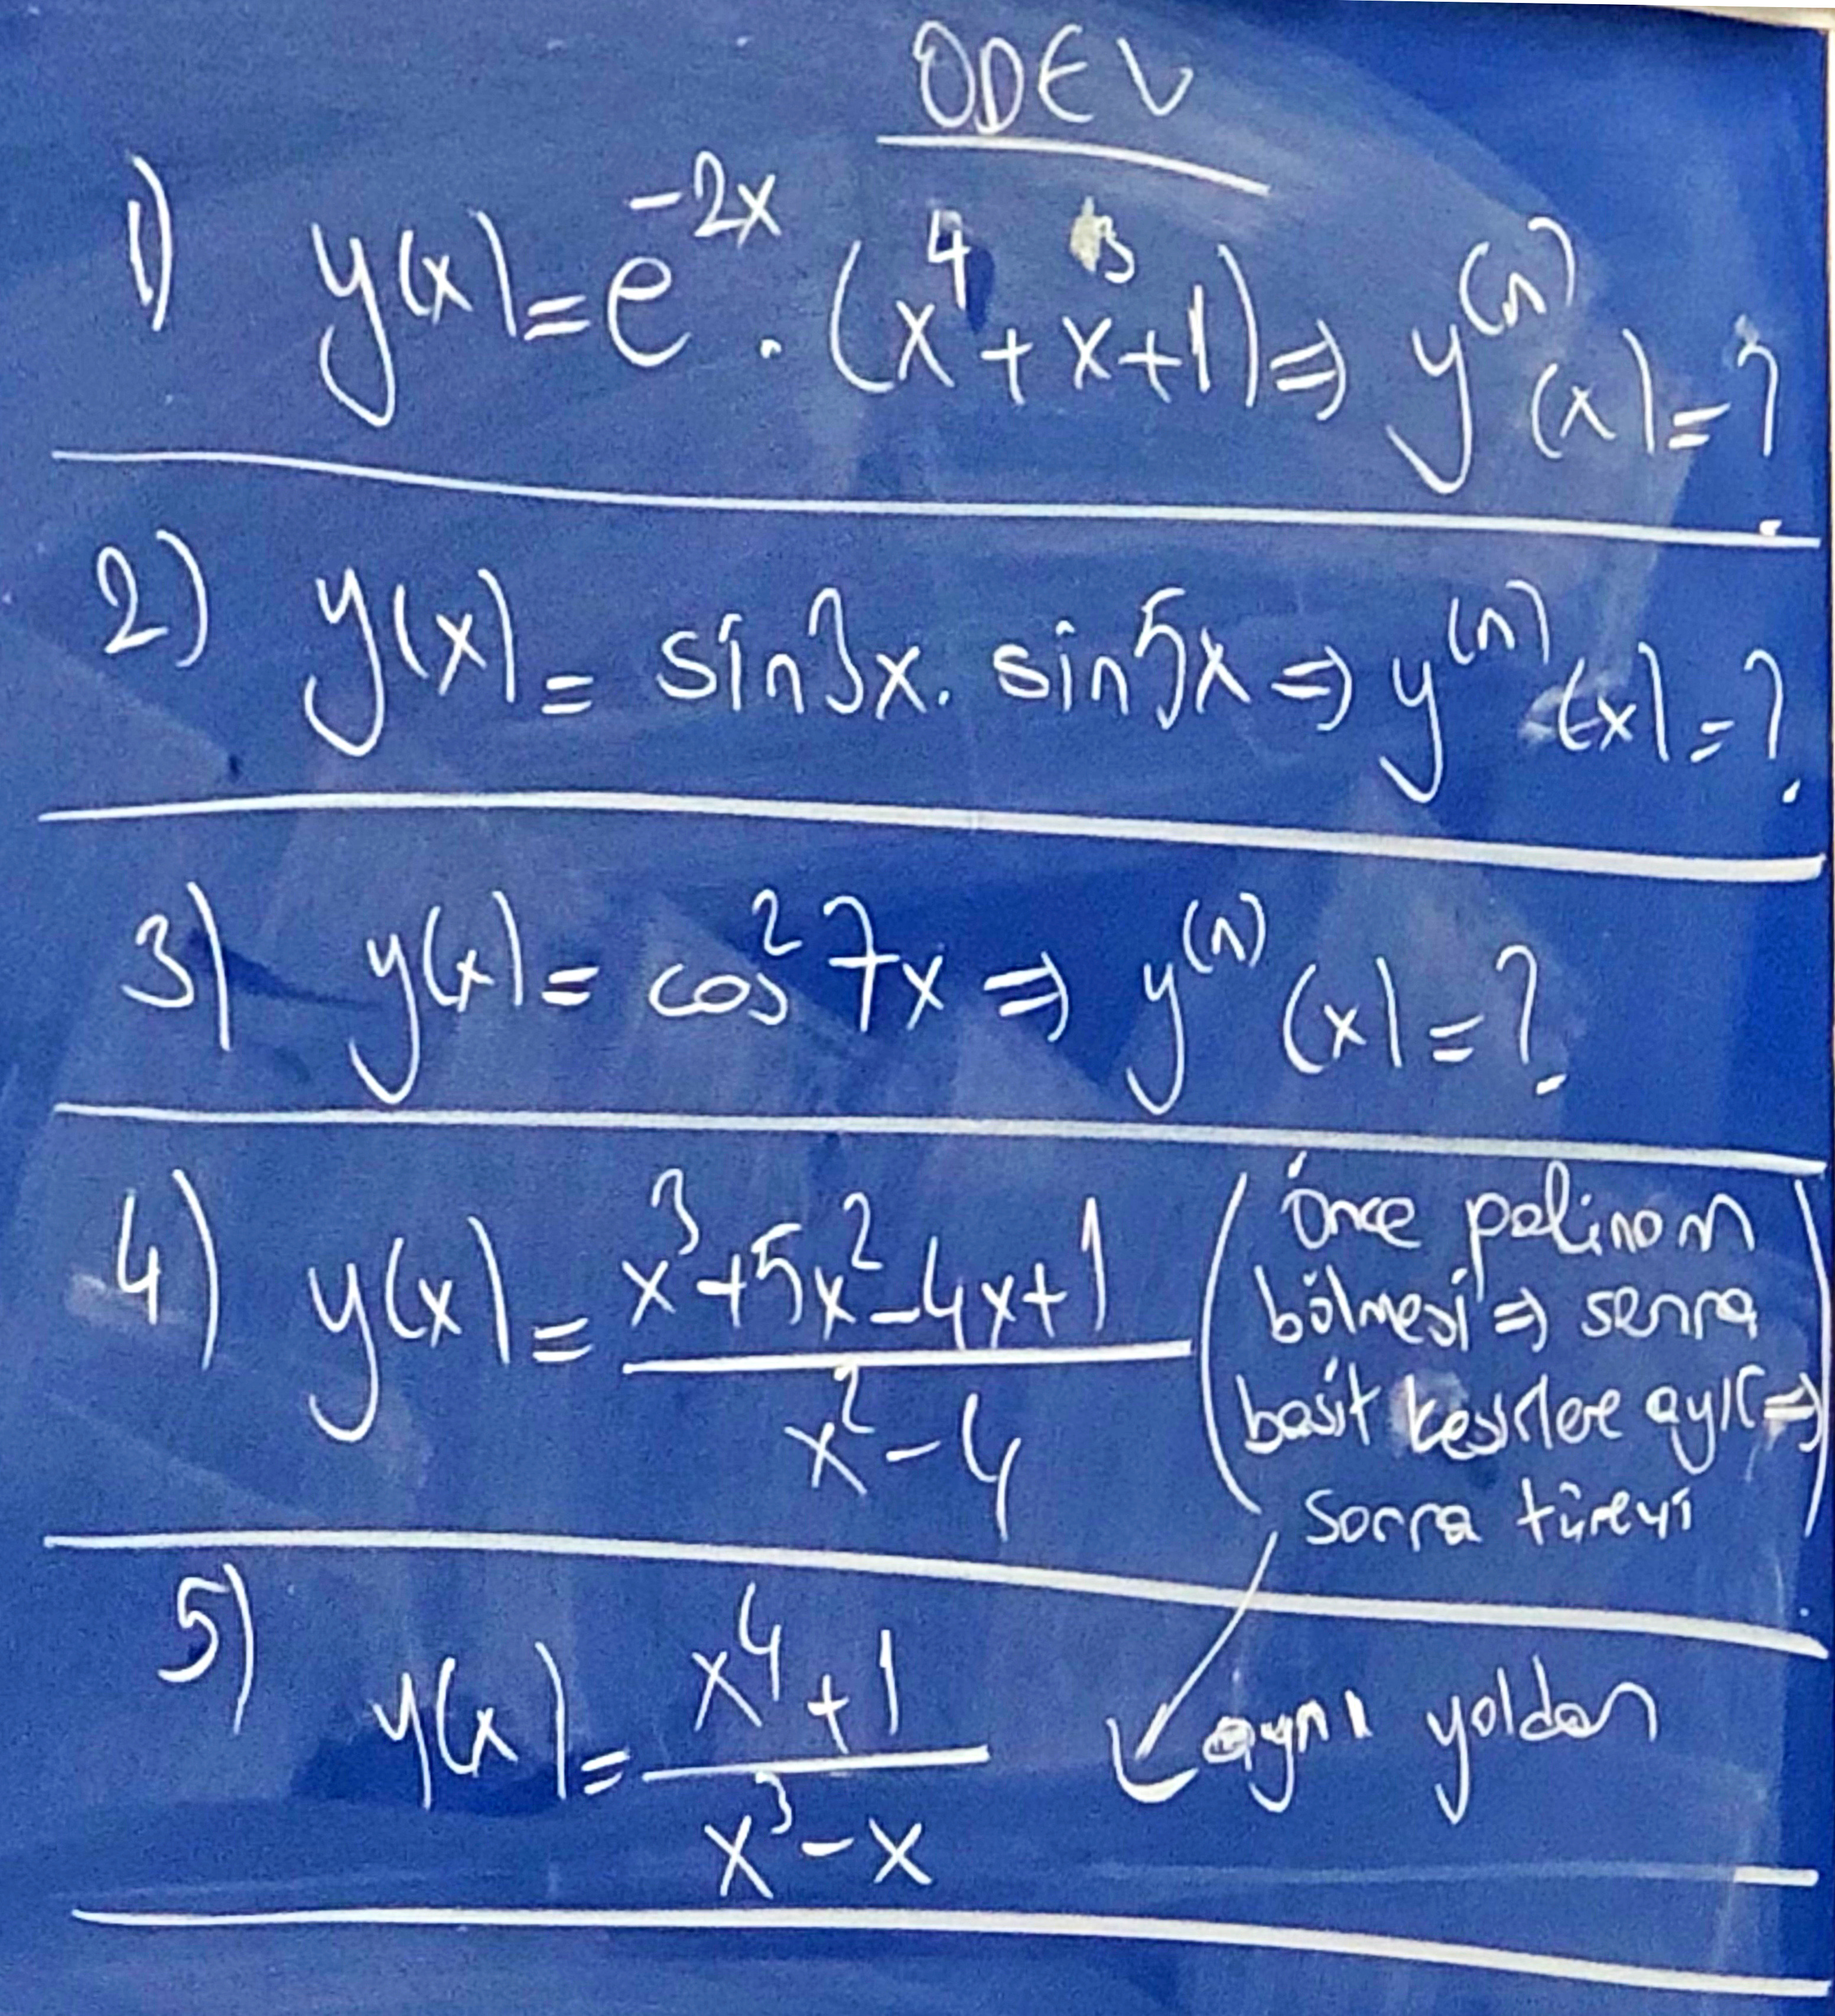 ÖDEV
1) y(x) = e^{-2x} . (x^4 + x^3 + 1) ⇒ y^{(n)}(x) = ?
2) y(x) = sin3x . sin5x ⇒ y^{(n)}(x) = ?
3) y(x) = cos^2 7x ⇒ y^{(n)}(x) = ?
4) y(x) = \frac{x^3+5x^2-4x+1}{x^2-4}
(önce polinom
bölmesi ⇒ sonra
basit kesirlere ayır ⇒
sonra türevi)
5) y(x) = \frac{x^4+1}{x^3-x} aynı yoldan